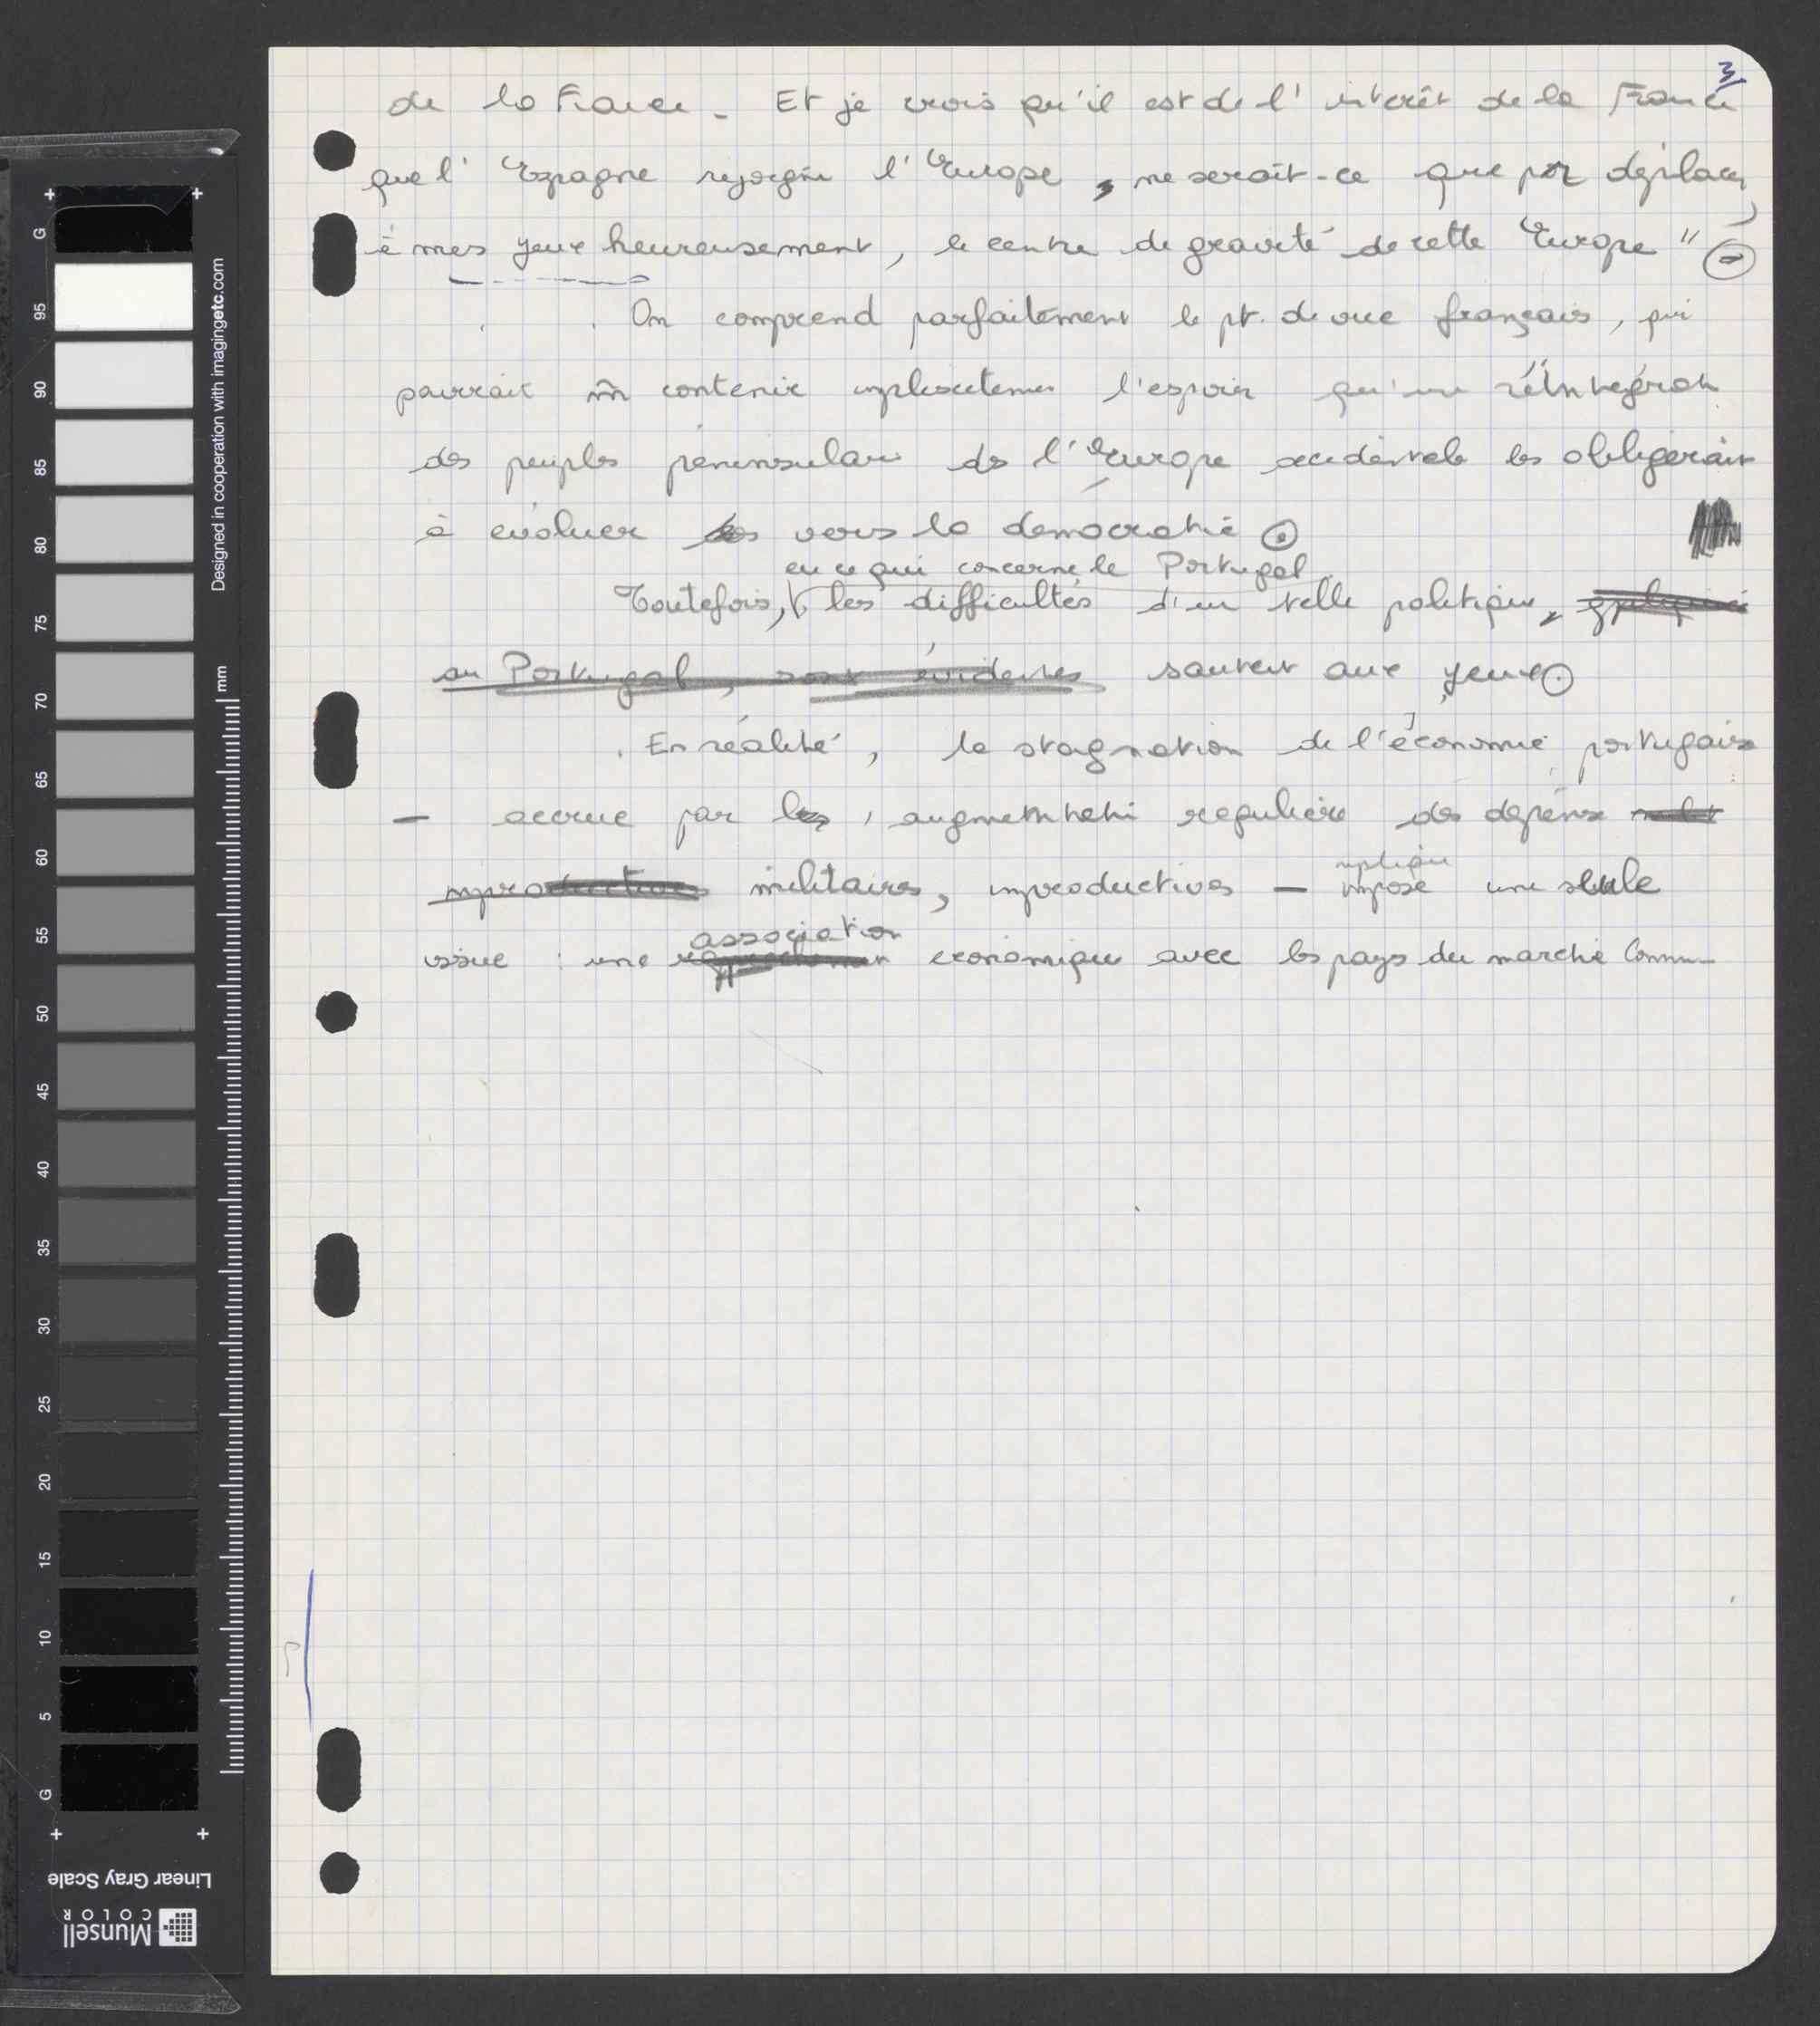 3
de la France. Et je crois qu'il est de l'intérêt de la France
que l'Espagne rejoigne l'Europe, ne serait-ce que pr déplacer,
à mes yeux heureusement, le centre de gravité de cette Europe"
On comprend parfaitement le pt. de vue français, qui
pourrait m̂ contenir implicitement l'espoir qu'une réintégration
des peuples péninsulaires ds l'Europe occidentale les obligerait
à évoluer vers la démocratie.
en ce qui concerne le Portugal
Toutefois, les difficultés d'une telle politique, appliquée
au Portugal, sont évidentes sautent aux yeux.
En réalité, la stagnation de l'économie portugaise
— accrue par l'augmentation régulière des dépenses
improductives militaires, improductives — impose une seule
implique
association
issue : une rapprochement économique avec les pays du marché Commun
Designed in cooperation with imagingetc.com
mm
G 95 90 85 80 75 70 65 60 55 50 45 40 35 30 25 20 15 10 5 G
Linear Gray Scale
Munsell
COLOR